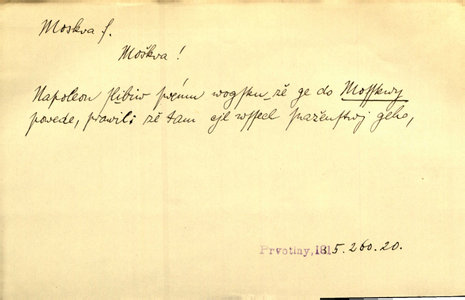 Moskva f.
Moškva!
Napoleon slibiw swému wogsku, zě ge do Mosskwy
powede, prawil: zě tam cýl wssech
geho,
Prvotiny, 1815. 260. 20.